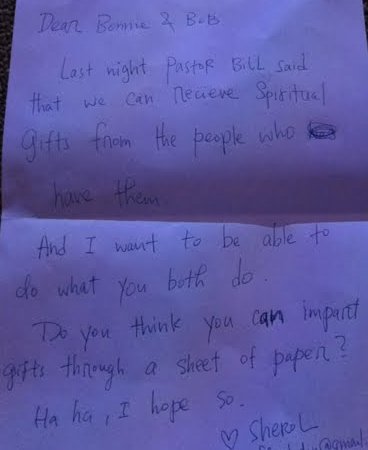 Dear Bonnie & Bob
Last night Pastor Bill said
that we can recieve Spiritual
gifts from the people who
have them.
And I want to be able to
do what you both do.
Do you think you can impart
gifts through a sheet of paper?
Ha ha, I hope so.
♡ SheroL